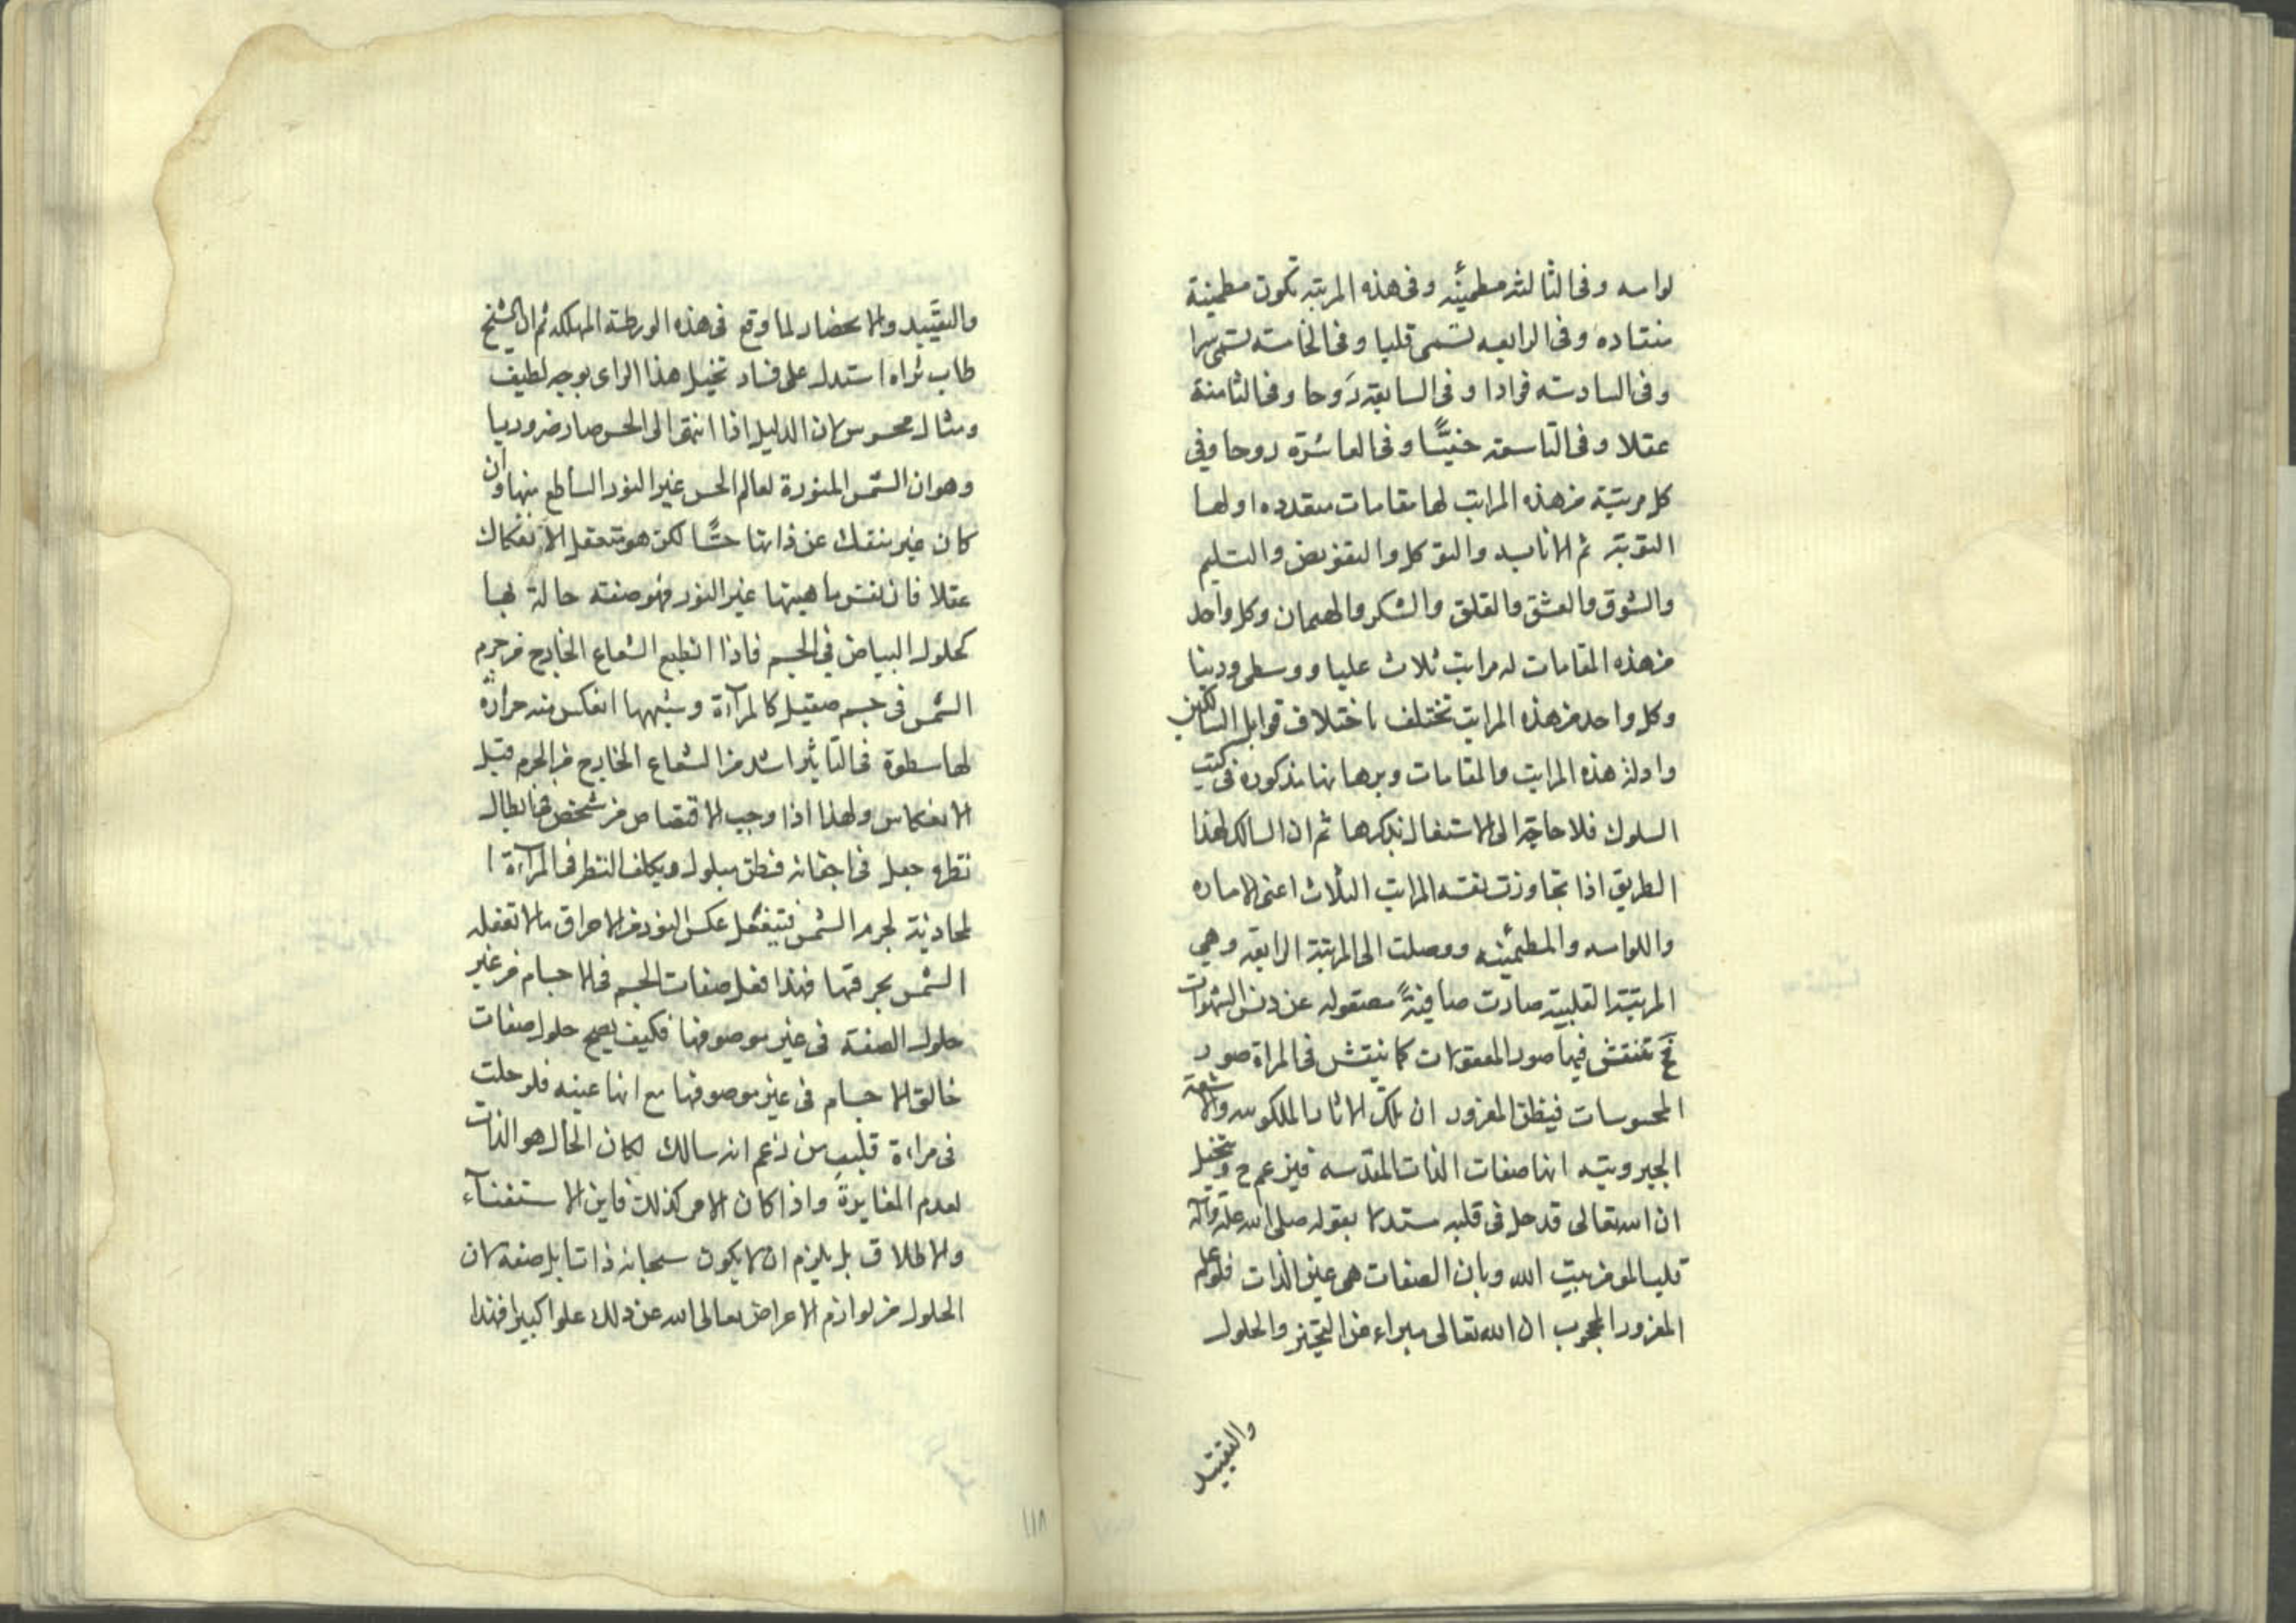 لوامه وفى الثالثه مطمئنه وفى هذه المرتبه تكون مطمئنة
منقاده وفى الرابعه تسمى قلبا وفى الخامسه تسمى سرا
وفى السادسه فوادا وفى السابعة رَوحا وفى الثامنة
عقلا وفى التاسعه خفيًّا وفى العاشرة روحا وفي
كل مرتبة من هذه المراتب لها مقامات متعدده اولها
التوبة ثم الانابه والتوكل والتفويض والتسليم
والشوق والعشق والقلق والسكر والهيمان وكل واحد
من هذه المقامات له مراتب ثلاث عليا ووسطى ودنيا
وكل واحد من هذه المراتب تختلف باختلاف قوابل السالكين
وادلة هذه المراتب والمقامات وبرهانها مذكوره فى كتب
السلوك فلا حاجة الى الاشتغال بذكرها ثم ان السالك لهذا
الطريق اذا تجاوزت نفسه المراتب الثلاث اعنى الاماره
واللوامه والمطمئنه ووصلت الى المرتبة الرابعه وهي
المرتبة القلبيه صارت صافيةً مصقوله عن دنس الشهوات
ح تنتقش فيها صور المعقولات كما ينتقش فى المراة صور
المحسوسات فيظن المغرور ان تلك الاثار الملكوتيه والاشعة
الجبروتيه انها صفات الذات المقدسه فيزعم ح ويتخيل
ان الله تعالى قد حل فى قلبه مستدلا بقوله صلى الله عليه وآله
قلب المومن بيت الله وبان الصفات هى عين الذات فلو علم
المغرور المحجوب ان الله تعالى مبراء عن التحيز والحلول
والتقييد
والتقييد والانحصار لما وقع فى هذه الورطة المهلكه ثم ان الشيخ
طاب ثراه استدل على فساد تخيل هذا الراى بوجه لطيف
ومثال محسوس لان الدليل اذا انتهى الى الحس صار ضروريا
وهو ان الشمس المنورة لعالم الحس غير النور الساطع منها وان
كان غير منفك عن ذاتها حسًّا لكن هو متعقل الانفكاك
عقلا فان نفس ماهيتها غير النور فهو صفته حالة بها
كحلول البياض في الجسم فاذا انطبع الشعاع الخارج من جرم
الشمس فى جسم صقيل كالمرآة وشبهها انعكس منه حرارة
لها سطوة فى التاثير اشد من الشعاع الخارج من الجرم قبل
الانعكاس ولهذا اذا وجب الاقتصاص من شخص بابطال
نظره جعل فى اجفانه قطن مبلول ويكلف النظر فى المرآة ا
لمحاذية لجرم الشمس فيفعل عكس النور من الاحراق ما لا تفعله
الشمس بحرقتها فهذا فعل صفات الجسم فى الاجسام من غير
حلول الصفة فى غير موصوفها فكيف يصح حلول صفات
خالق الاجسام فى غير موصوفها مع انها عينه فلو حلت
فى مراءة قلب من زعم انه سالك لكان الحال هو الذات
لعدم المغايرة واذا كان الامر كذلك فاين الاستغناء
والاطلاق بل يلزم ان لا يكون سبحانه ذاتا بل صفه لان
الحلول من لوازم الاعراض تعالى الله عن ذلك علوا كبيرا فهذا
١١٨